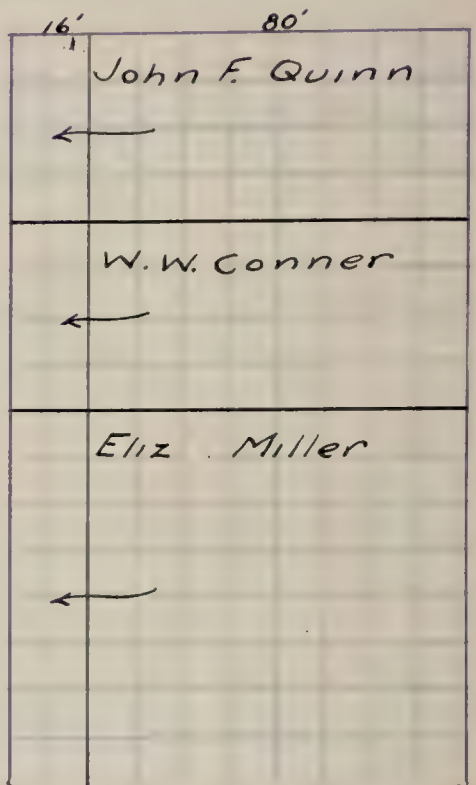 16' 80'
John F. Quinn
W. W. Conner
Eliz. Miller